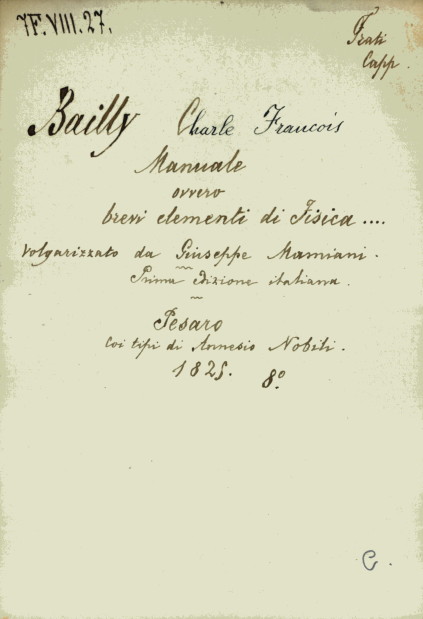 7F.VIII.27.
Frati
Capp.
Bailly Charle Francois
Manuale
ovvero
brevi elementi di Fisica ....
volgarizzato da Giuseppe Mamiani.
Prima edizione italiana.
Pesaro
Coi tipi di Annesio Nobili.
1825. 8º
C.